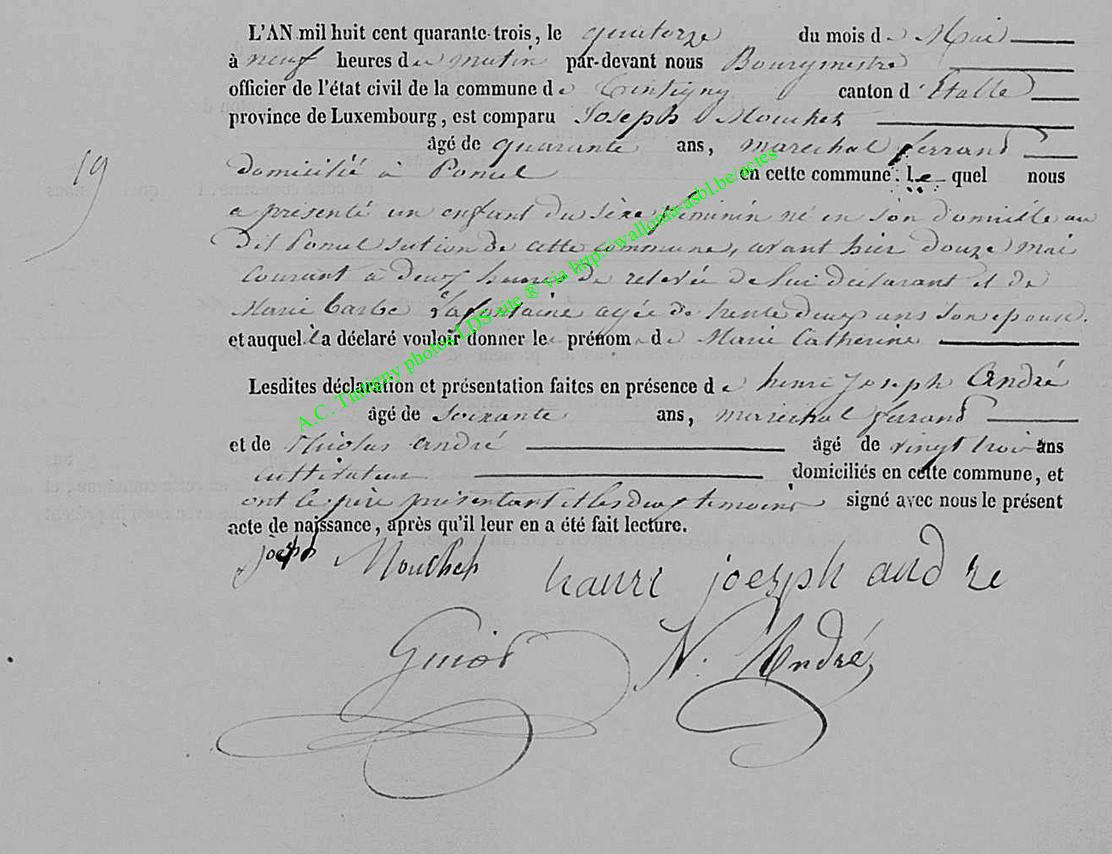 L'AN mil huit cent quarante-trois, le quatorze du mois de Mai
à neuf heures du matin par-devant nous Bourgmestre
officier de l'état civil de la commune de Tintigny canton d'Etalle
province de Luxembourg, est comparu Joseph Mouchet
âgé de quarante ans, marechal ferrand
19
domicilié à Poncel en cette commune, le quel nous
a présenté un enfant du sexe féminin né en son domicile au
dit Poncel section de cette commune, avant hier douze mai
courant à deux heures de relevée de lui déclarant et de
Marie Barbe Lafontaine agée de trente deux ans son epouse.
et auquel il a déclaré vouloir donner le prénom de Marie Catherine
Lesdites déclaration et présentation faites en présence de henri Joseph André
âgé de soixante ans, marechal ferrand
et de Nicolas andré âgé de vingt trois ans
cultivateur domiciliés en cette commune, et
ont le père présentant et les deux temoins signé avec nous le présent
acte de naissance, après qu'il leur en a été fait lecture.
Mouchet hanri joesph andre
Guiot N. André
A.C. Tintigny photos LDS site ® via http://wallonia-asbl.be/actes